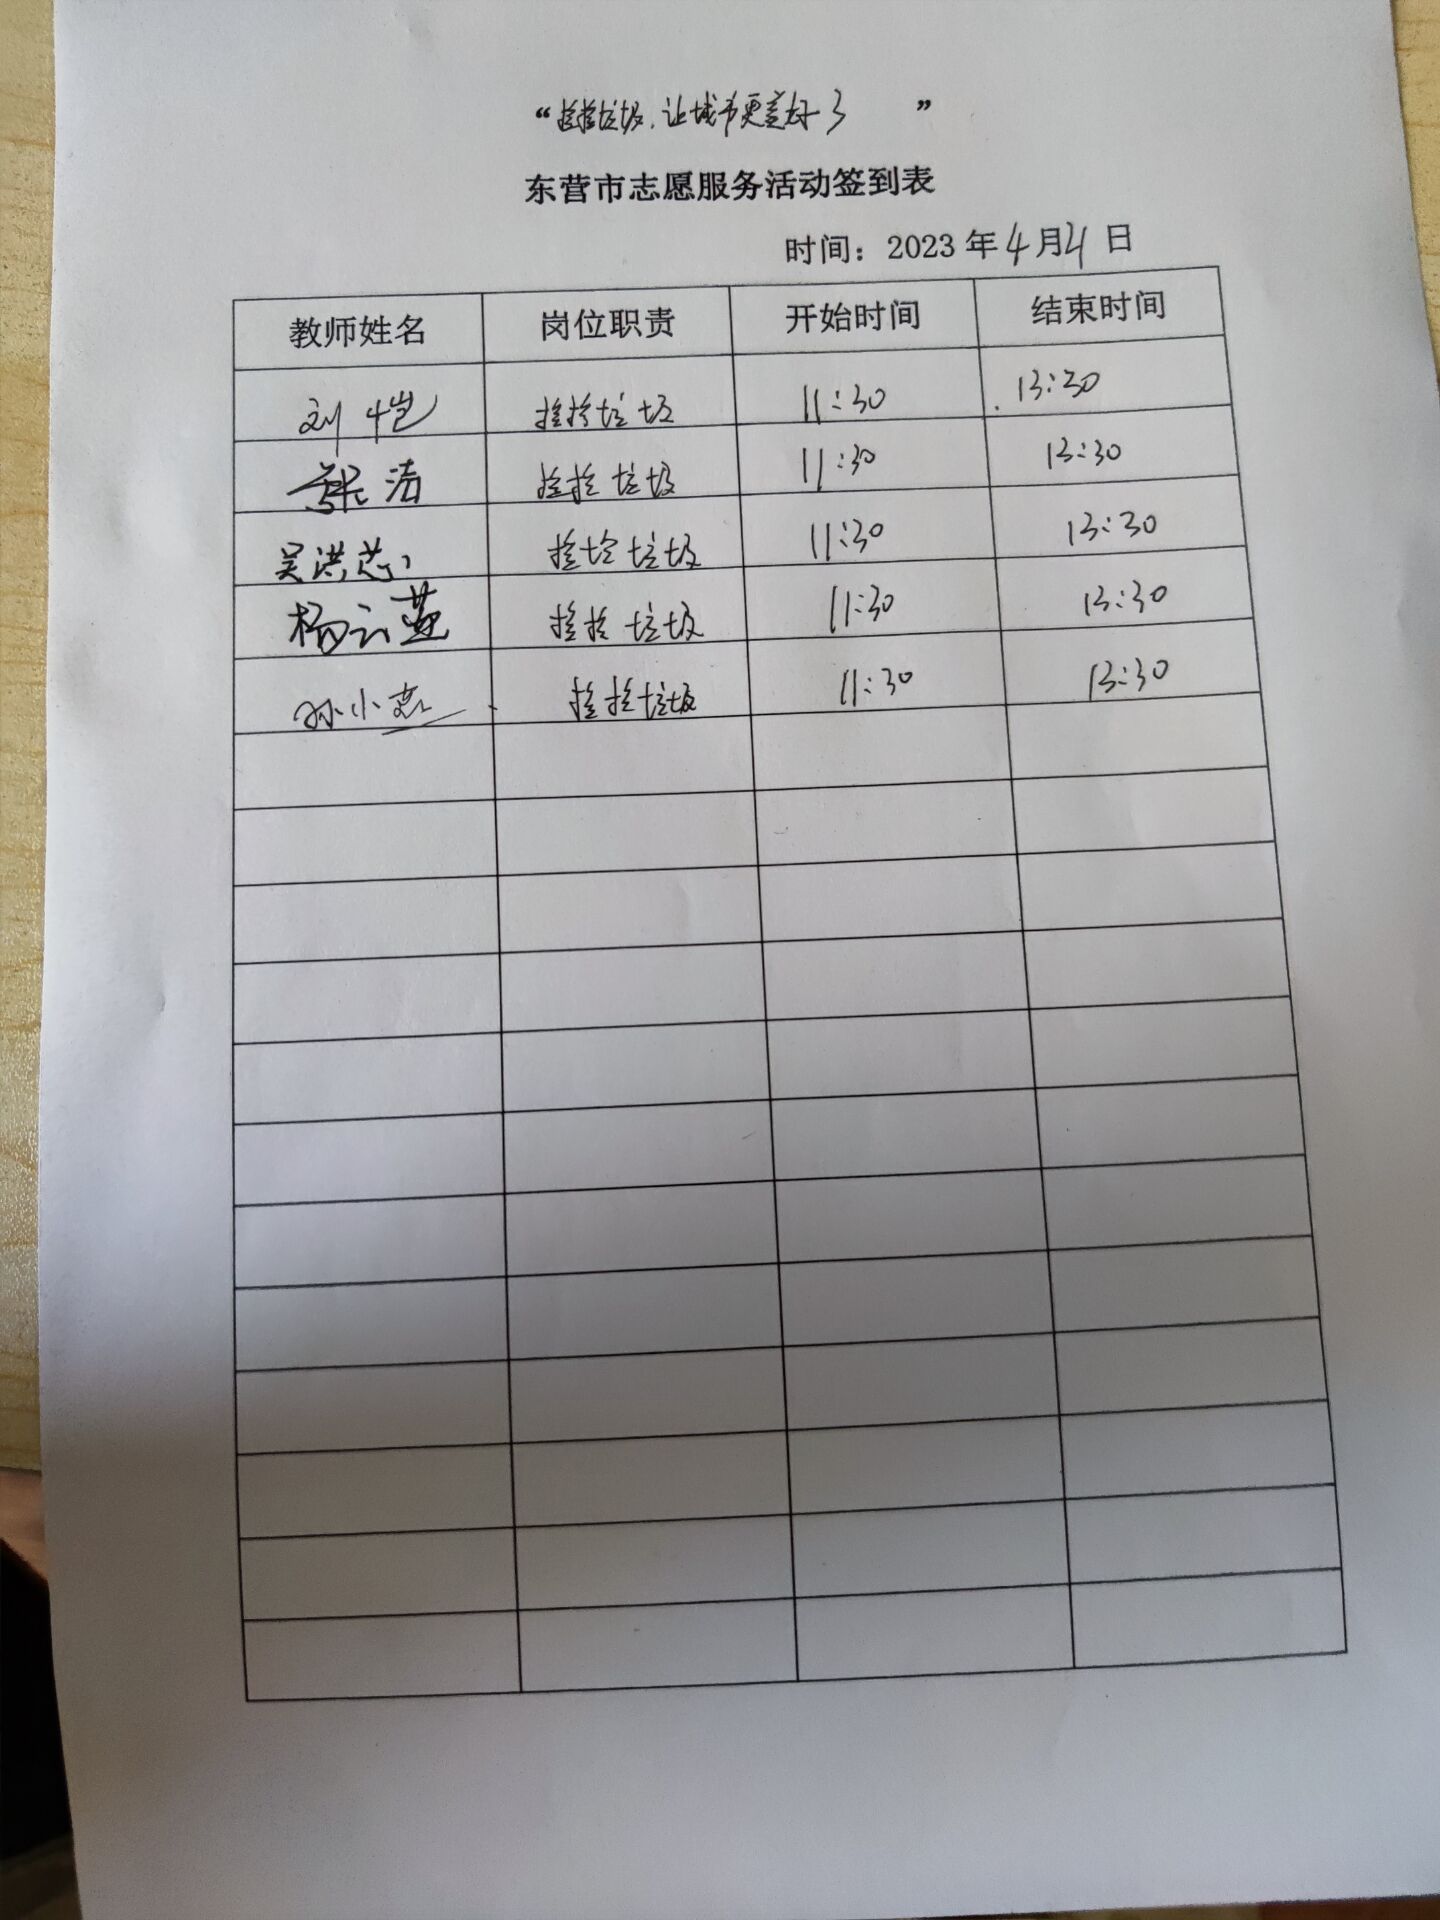 “捡捡垃圾,让城市更美好了”
东营市志愿服务活动签到表
时间：2023年4月4日
教师姓名 岗位职责 开始时间 结束时间
刘恺 捡捡垃圾 11:30 13:30
张洁 捡捡垃圾 11:30 13:30
吴洪芯 捡捡垃圾 11:30 13:30
杨云燕 捡捡垃圾 11:30 13:30
孙小燕 捡捡垃圾 11:30 13:30